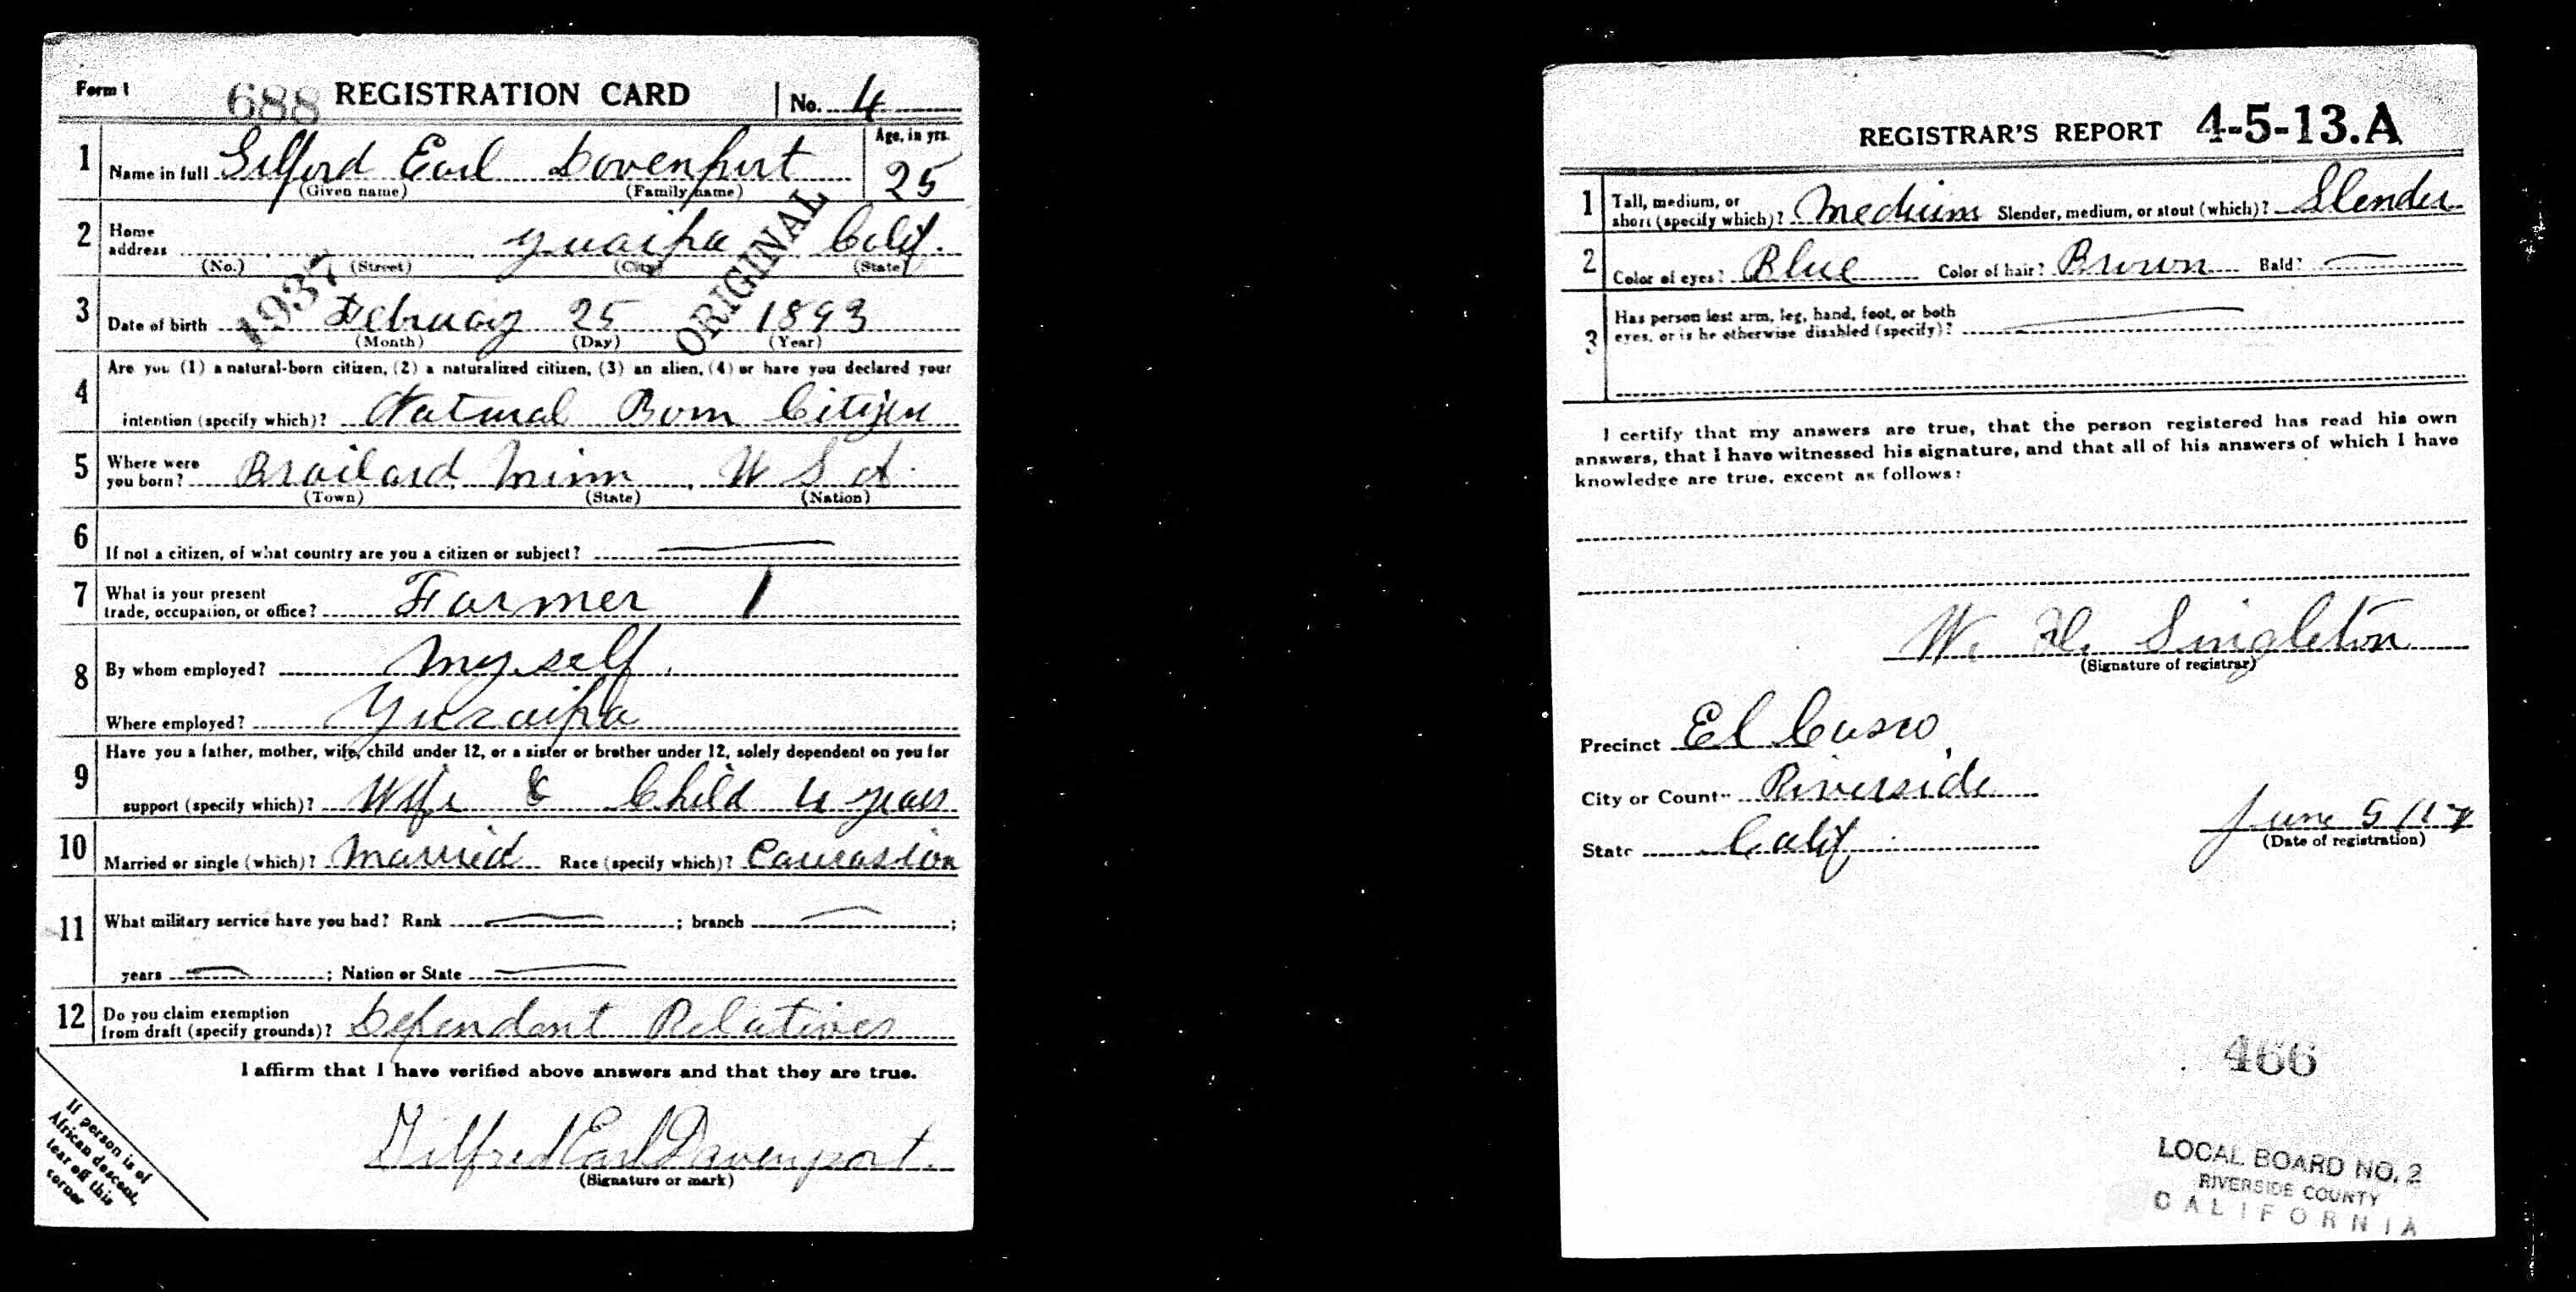 Form 1 688 REGISTRATION CARD No. 4
1 Name in full Gilford Earl Davenport Age, in yrs. 25
(Given name) (Family name)
2 Home address Yuaipa Calif.
(No.) (Street) (City) (State)
1937 ORIGINAL
3 Date of birth February 25 1893
(Month) (Day) (Year)
4 Are you (1) a natural-born citizen, (2) a naturalized citizen, (3) an alien, (4) or have you declared your
intention (specify which)? Natural Born Citizen
5 Where were you born? Brailard Minn U S A.
(Town) (State) (Nation)
6 If not a citizen, of what country are you a citizen or subject?
7 What is your present trade, occupation, or office? Farmer 1
8 By whom employed? My self.
Where employed? Yucaipa
9 Have you a father, mother, wife, child under 12, or a sister or brother under 12, solely dependent on you for
support (specify which)? Wife & Child 4 years
10 Married or single (which)? Married Race (specify which)? Caucasian
11 What military service have you had? Rank ; branch ;
years ; Nation or State
12 Do you claim exemption from draft (specify grounds)? Dependent Relatives
I affirm that I have verified above answers and that they are true.
Gilfred Earl Davenport.
(Signature or mark)
If person is of
African descent,
tear off this
corner
REGISTRAR'S REPORT 4-5-13.A
1 Tall, medium, or short (specify which)? Medium Slender, medium, or stout (which)? Slender
2 Color of eyes? Blue Color of hair? Brown Bald? —
3 Has person lost arm, leg, hand, foot, or both
eyes, or is he otherwise disabled (specify)?
I certify that my answers are true, that the person registered has read his own
answers, that I have witnessed his signature, and that all of his answers of which I have
knowledge are true, except as follows:
W. H. Singleton
(Signature of registrar)
Precinct El Casco
City or County Riverside
State Calif.
June 5/17
(Date of registration)
466
LOCAL BOARD NO. 2
RIVERSIDE COUNTY
CALIFORNIA